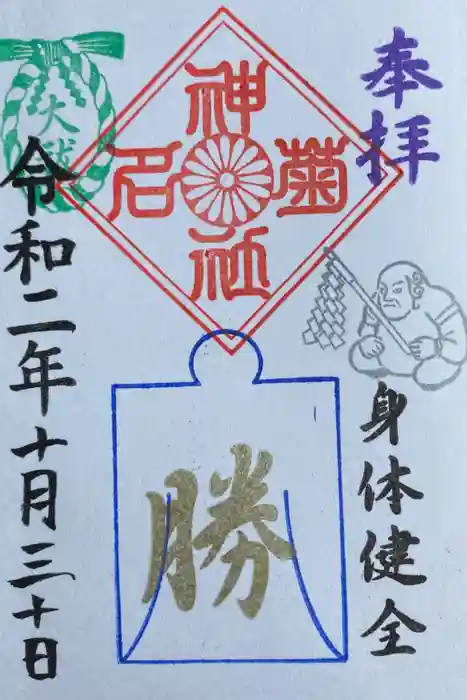 奉拝
身体健全
菊名
神社
勝
令和二年十月三十日